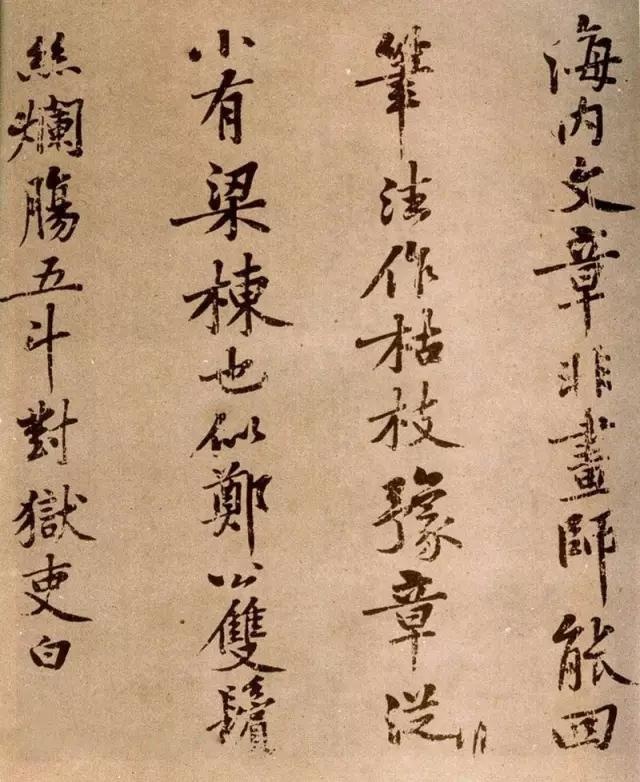 海内文章非畫師能回
筆法作枯枝豫章從
小有梁棟也似鄭公雙鬢
絲爛腸五斗對獄吏白